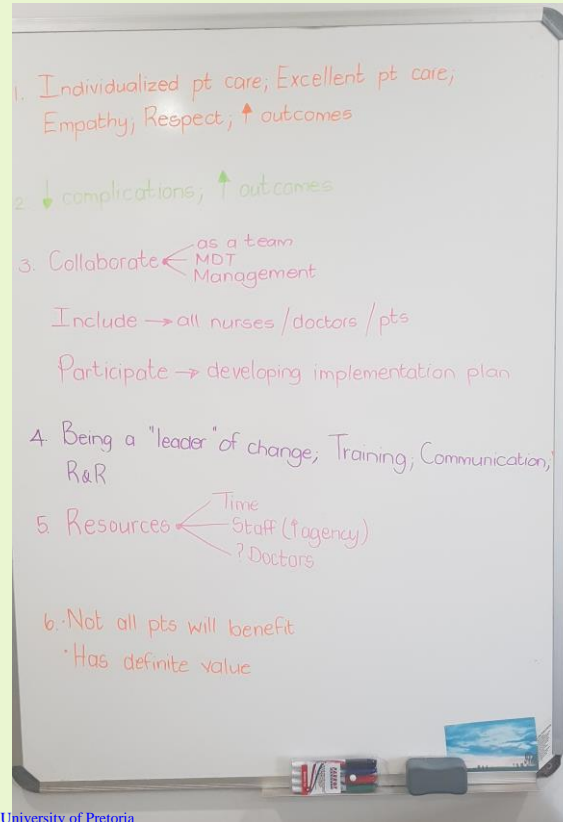 1. Individualized pt care; Excellent pt care;
Empathy; Respect; ↑ outcomes
2. ↓ complications; ↑ outcomes
3. Collaborate as a team
MDT
Management
Include → all nurses / doctors / pts
Participate → developing implementation plan
4. Being a "leader" of change; Training; Communication;
R&R
5. Resources Time
Staff (↑agency)
? Doctors
6. · Not all pts will benefit
· Has definite value
University of Pretoria